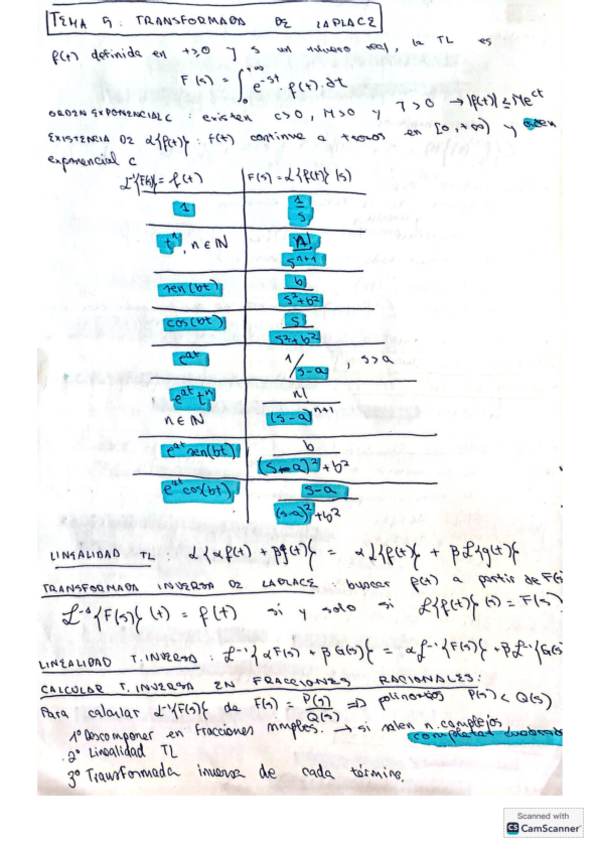 TEMA 5: TRANSFORMADA DE LAPLACE
f(t) definida en t>0 y s un número real, la TL es
F(s) = ∫₀^{+∞} e^{-st} · f(t) · dt
ORDEN EXPONENCIAL C : existen c>0, M>0 y T>0 → |f(t)| ≤ Me^{ct}
EXISTENCIA DE ℒ{f(t)} : f(t) continua a trozos en [0,+∞) y orden
exponencial c
ℒ⁻¹{F(s)} = f(t) | F(s) = ℒ{f(t)}(s)
1 | 1/s
tⁿ, n ∈ ℕ | n!/s^{n+1}
sen(bt) | b/(s²+b²)
cos(bt) | s/(s²+b²)
e^{at} | 1/(s-a) , s>a
e^{at} tⁿ n ∈ ℕ | n!/(s-a)^{n+1}
e^{at} sen(bt) | b/((s-a)²+b²)
e^{at} cos(bt) | (s-a)/((s-a)²+b²)
LINEALIDAD TL : ℒ{αf(t) + βg(t)} = αℒ{f(t)} + βℒ{g(t)}
TRANSFORMADA INVERSA DE LAPLACE : buscar f(t) a partir de F(s
ℒ⁻¹{F(s)}(t) = f(t) si y solo si ℒ{f(t)}(s) = F(s)
LINEALIDAD T.INVERSA : ℒ⁻¹{αF(s) + βG(s)} = αℒ⁻¹{F(s)} + βℒ⁻¹{G(s
CALCULAR T. INVERSA EN FRACCIONES RACIONALES:
Para calcular ℒ⁻¹{F(s)} de F(s) = P(s)/Q(s) ⇒ polinomios P(s) < Q(s)
1º Descomponer en fracciones simples. → si salen n. complejos
completar cuadrados
2º Linealidad TL
3º Transformada inversa de cada término.
Scanned with
CS CamScanner